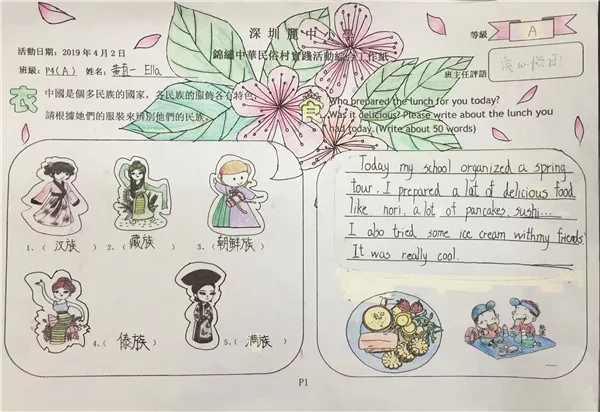 深圳麗中小學
錦繡中華民俗村實踐活動綜合工作紙
活動日期：2019 年 4 月 2 日
班級：P4(A) 姓名： Ella
等級 A
班主任評語
衣
中國是個多民族的國家，各民族的服飾各有特色，
請根據她們的服裝來辨別他們的民族。
1、（汉族） 2、（藏族） 3、（朝鮮族）
4、（傣族） 5、（满族）
食
Who prepared the lunch for you today?
Was it delicious? Please write about the lunch you
had today.(Write about 50 words)
Today my school organized a spring
tour. I prepared a lot of delicious food
like nori, a lot of pancakes, sushi...
I also tried some ice cream with my friends.
It was really cool.
P1